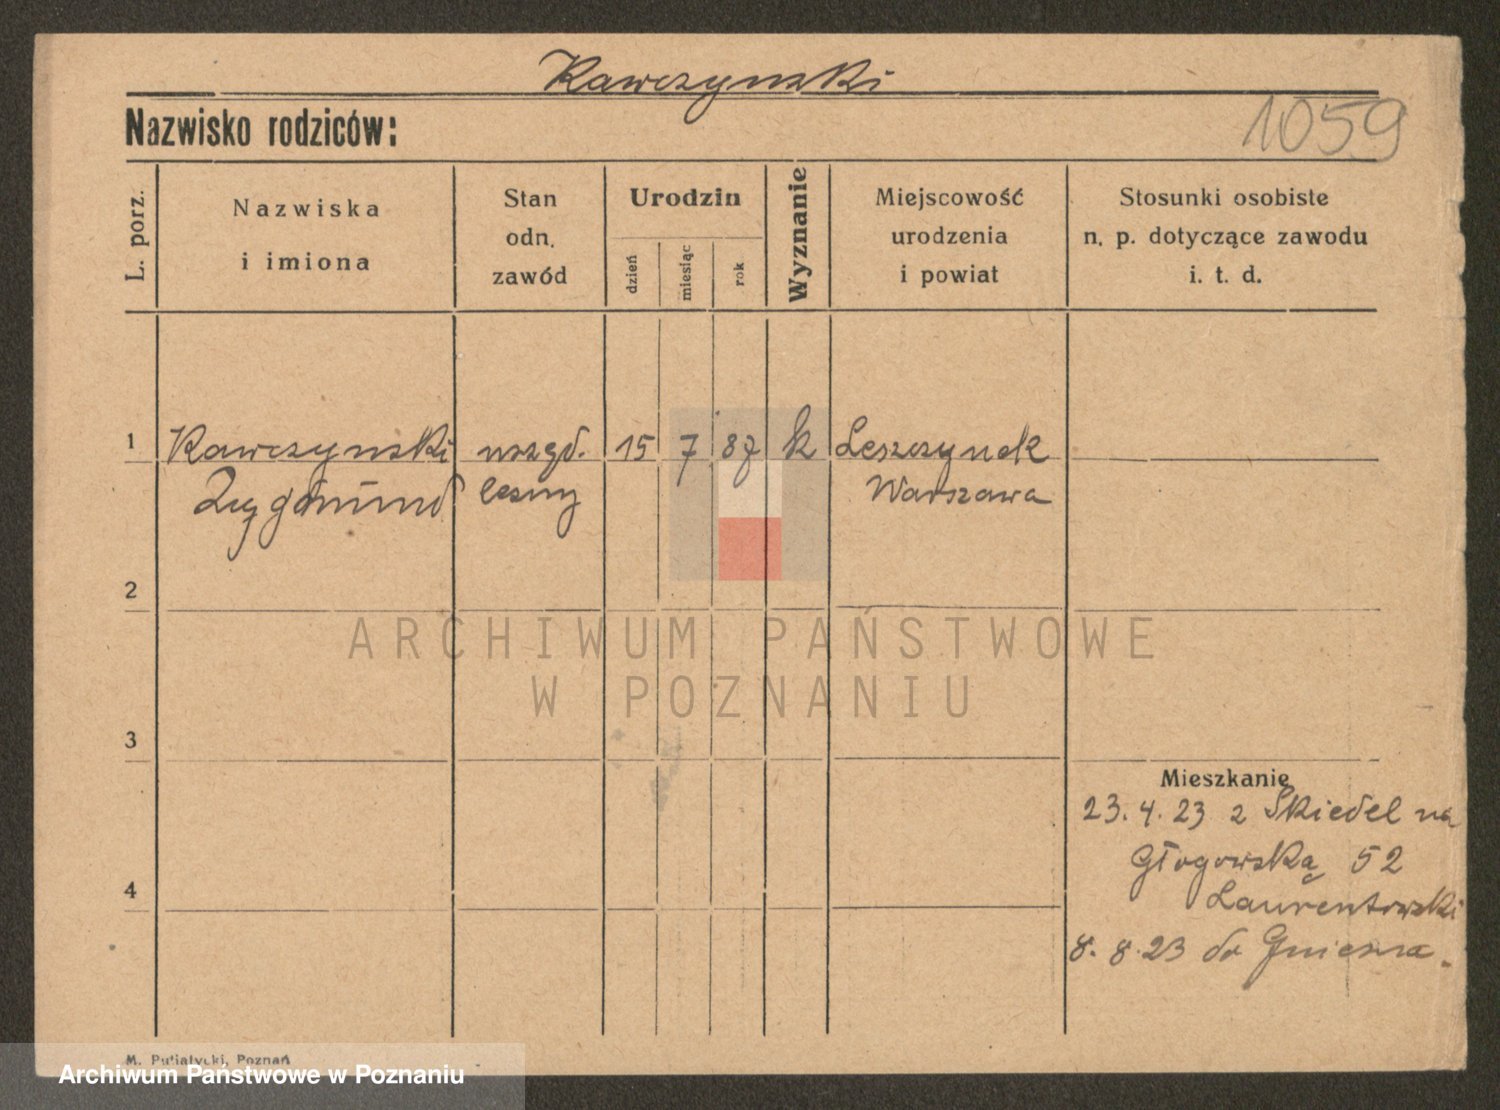 Kawczynski
Nazwisko rodziców:
1059
L. porz.
Nazwiska
i imiona
Stan
odn.
zawód
Urodzin
dzień
miesiąc
rok
Wyznanie
Miejscowość
urodzenia
i powiat
Stosunki osobiste
n. p. dotyczące zawodu
i. t. d.
1
Kawczynski
Zygmund
urzęd.
lesny
15
7
87
k
Leszczynek
Warszawa
2
ARCHIWUM PAŃSTWOWE
W POZNANIU
3
Mieszkanie
23. 4. 23 z Skiedel na
Głogowską 52
Laurentowski
8. 8. 23 do Gniezna.
4
M. Putiatycki, Poznań
Archiwum Państwowe w Poznaniu